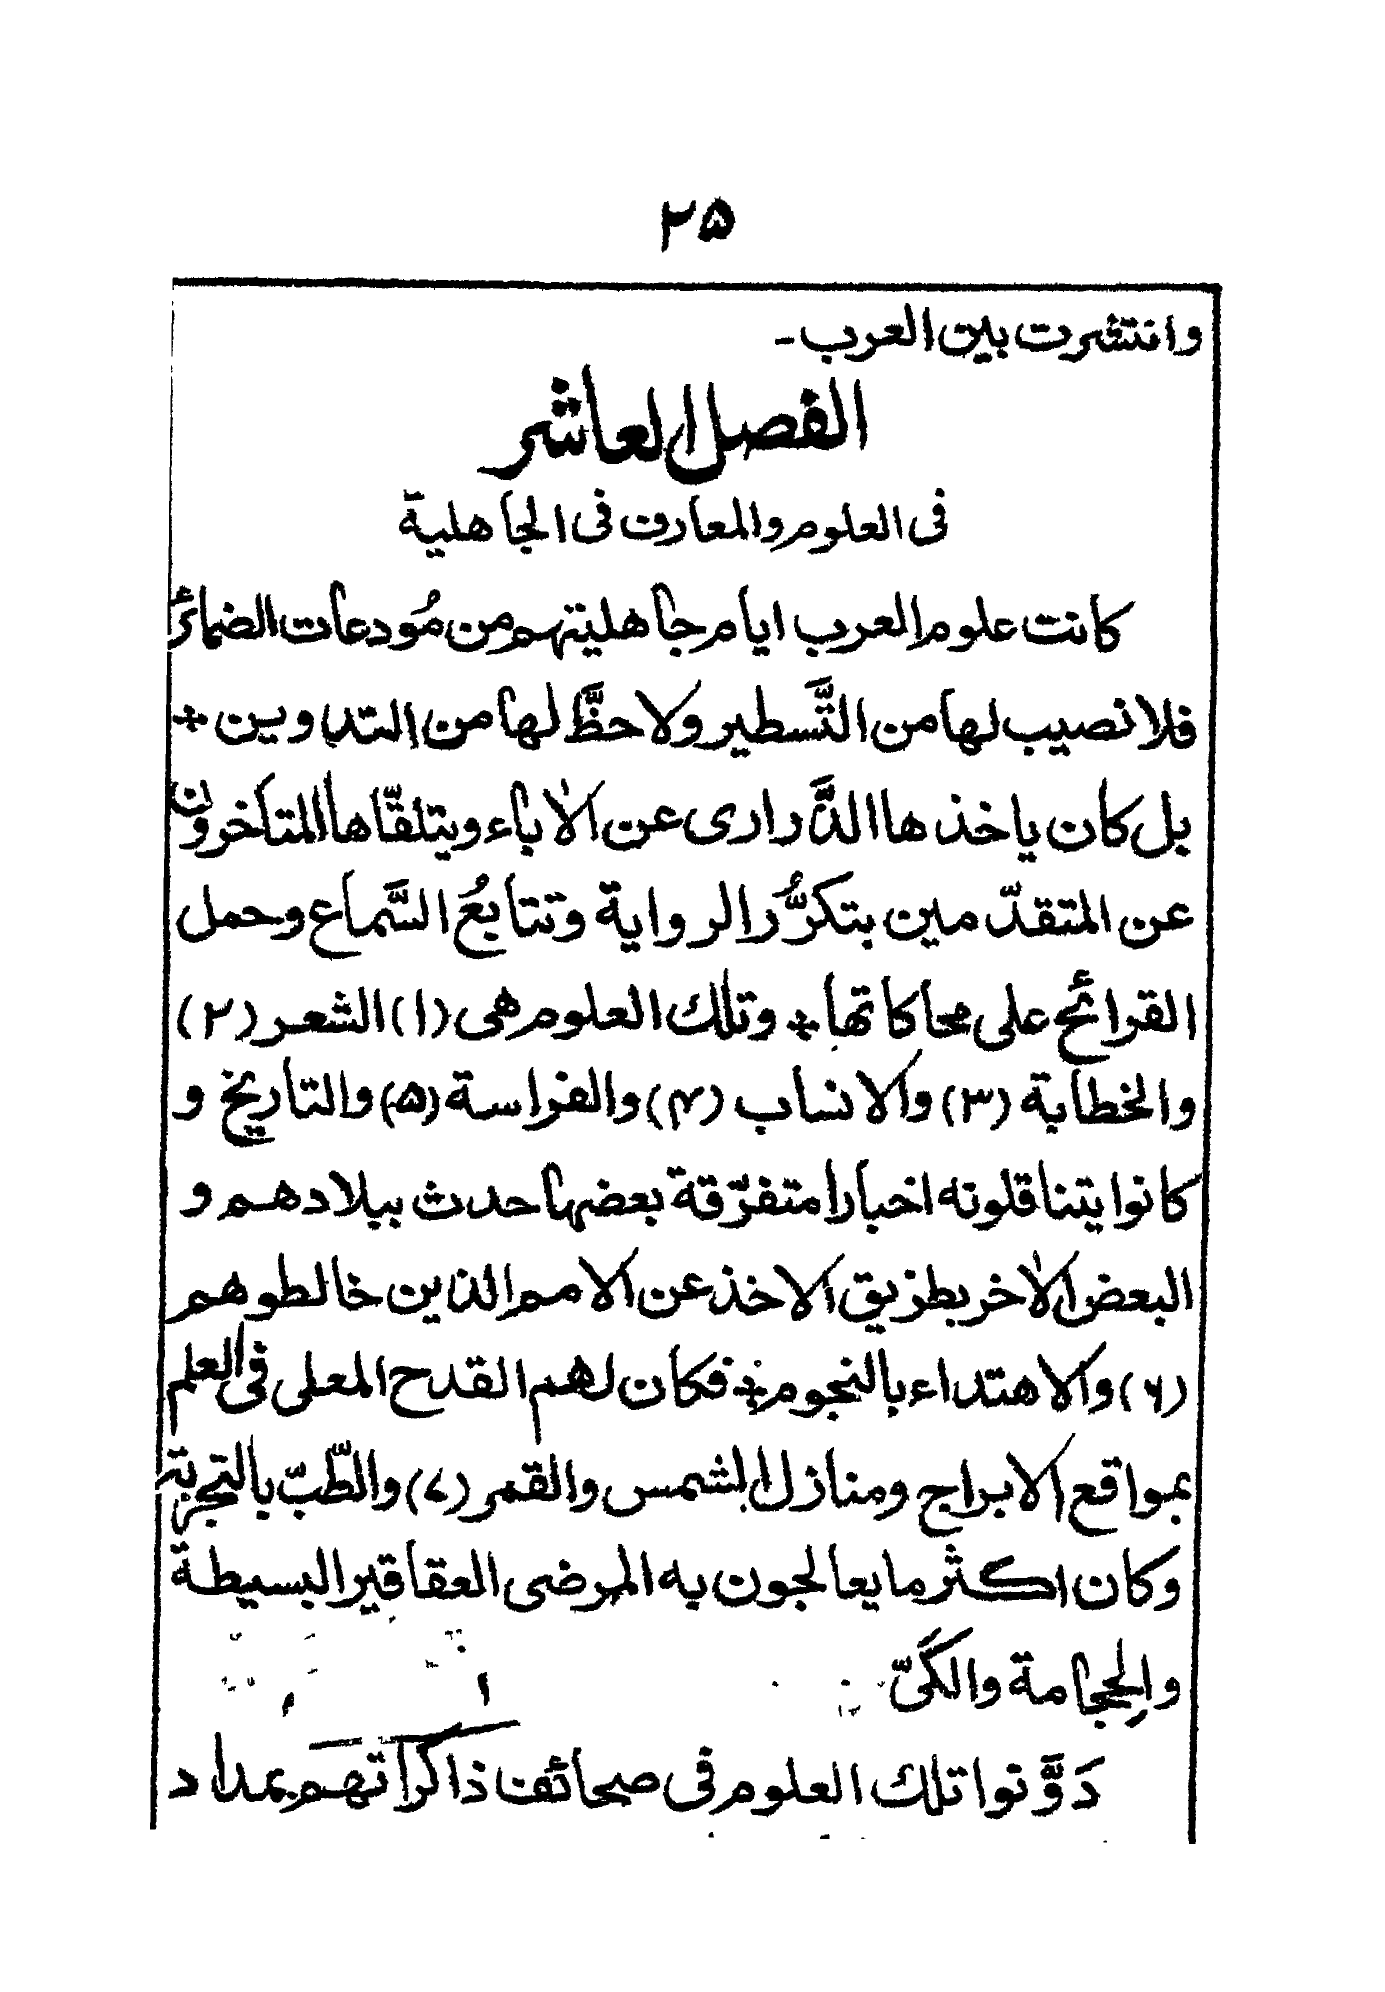 ۲۵
وانتشرت بين العرب -
الفصل العاشر
فى العلوم والمعارف فى الجاهلية
كانت علوم العرب ايام جاهليتهم من مُودعات الضمائر
فلا نصيب لها من التَّسطير ولا حظَّ لها من التدوين *
بل كان ياخذها الدَّرارى عن الاٰباء ويتلقّاها المتأخرون
عن المتقدّمين بتكرُّر الرواية وتتابُع السَّماع وحمل
القرائح على محاكاتها * وتلك العلوم هى (۱) الشعر (۲)
والخطابة (۳) والانساب (۴) والفراسة (۵) والتأريخ و
كانوا يتناقلونه اخبارا متفرّقة بعضها حدث ببلادهم و
البعض الاٰخر بطريق الاخذ عن الامم الذين خالطوهم
(۶) والاهتداء بالنجوم * فكان لهم القدح المعلى فى العلم
بمواقع الابراج ومنازل الشمس والقمر (۷) والطّبّ بالتجربة
وكان اكثر ما يعالجون به المرضى العقاقير البسيطة
والحجامة والكَىّ
دَوَّنوا تلك العلوم فى صحائف ذاكراتهم بمداد